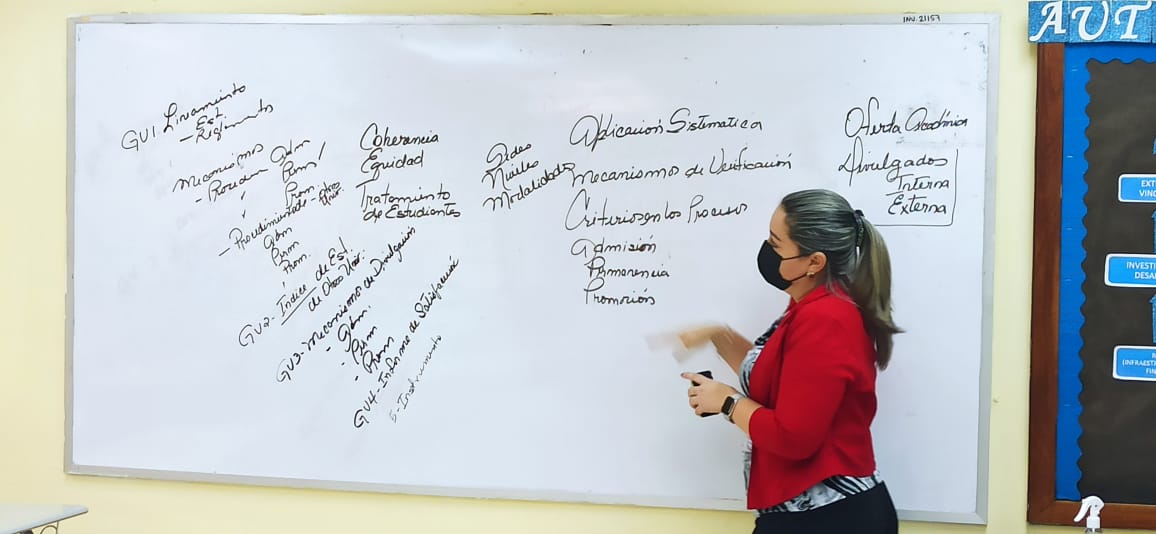 INV. 21157
AUT
GV1 Linamiento
- Est.
- Reglamento
Mecanismos
Adm
Perm
Prom
- Procedimientos - Otras Univ.
Adm
Perm
Prom.
GV2- Indice de Est.
de Otras Univ.
GV3- Mecanismos de Divulgación
- Adm.
- Perm
- Prom
GV4- Informe de Satisfacción
5- Instrumento
Coherencia
Equidad
Tratamiento
de Estudiantes
Sedes
Modalidades
Aplicación Sistematica
Mecanismos de Verificación
Criterios en los Procesos
Admisión
Permanencia
Promoción
Oferta Académica
Divulgados
Interna
Externa
EXT
VINC
INVESTI
DESA
(INFRAEST
FIN